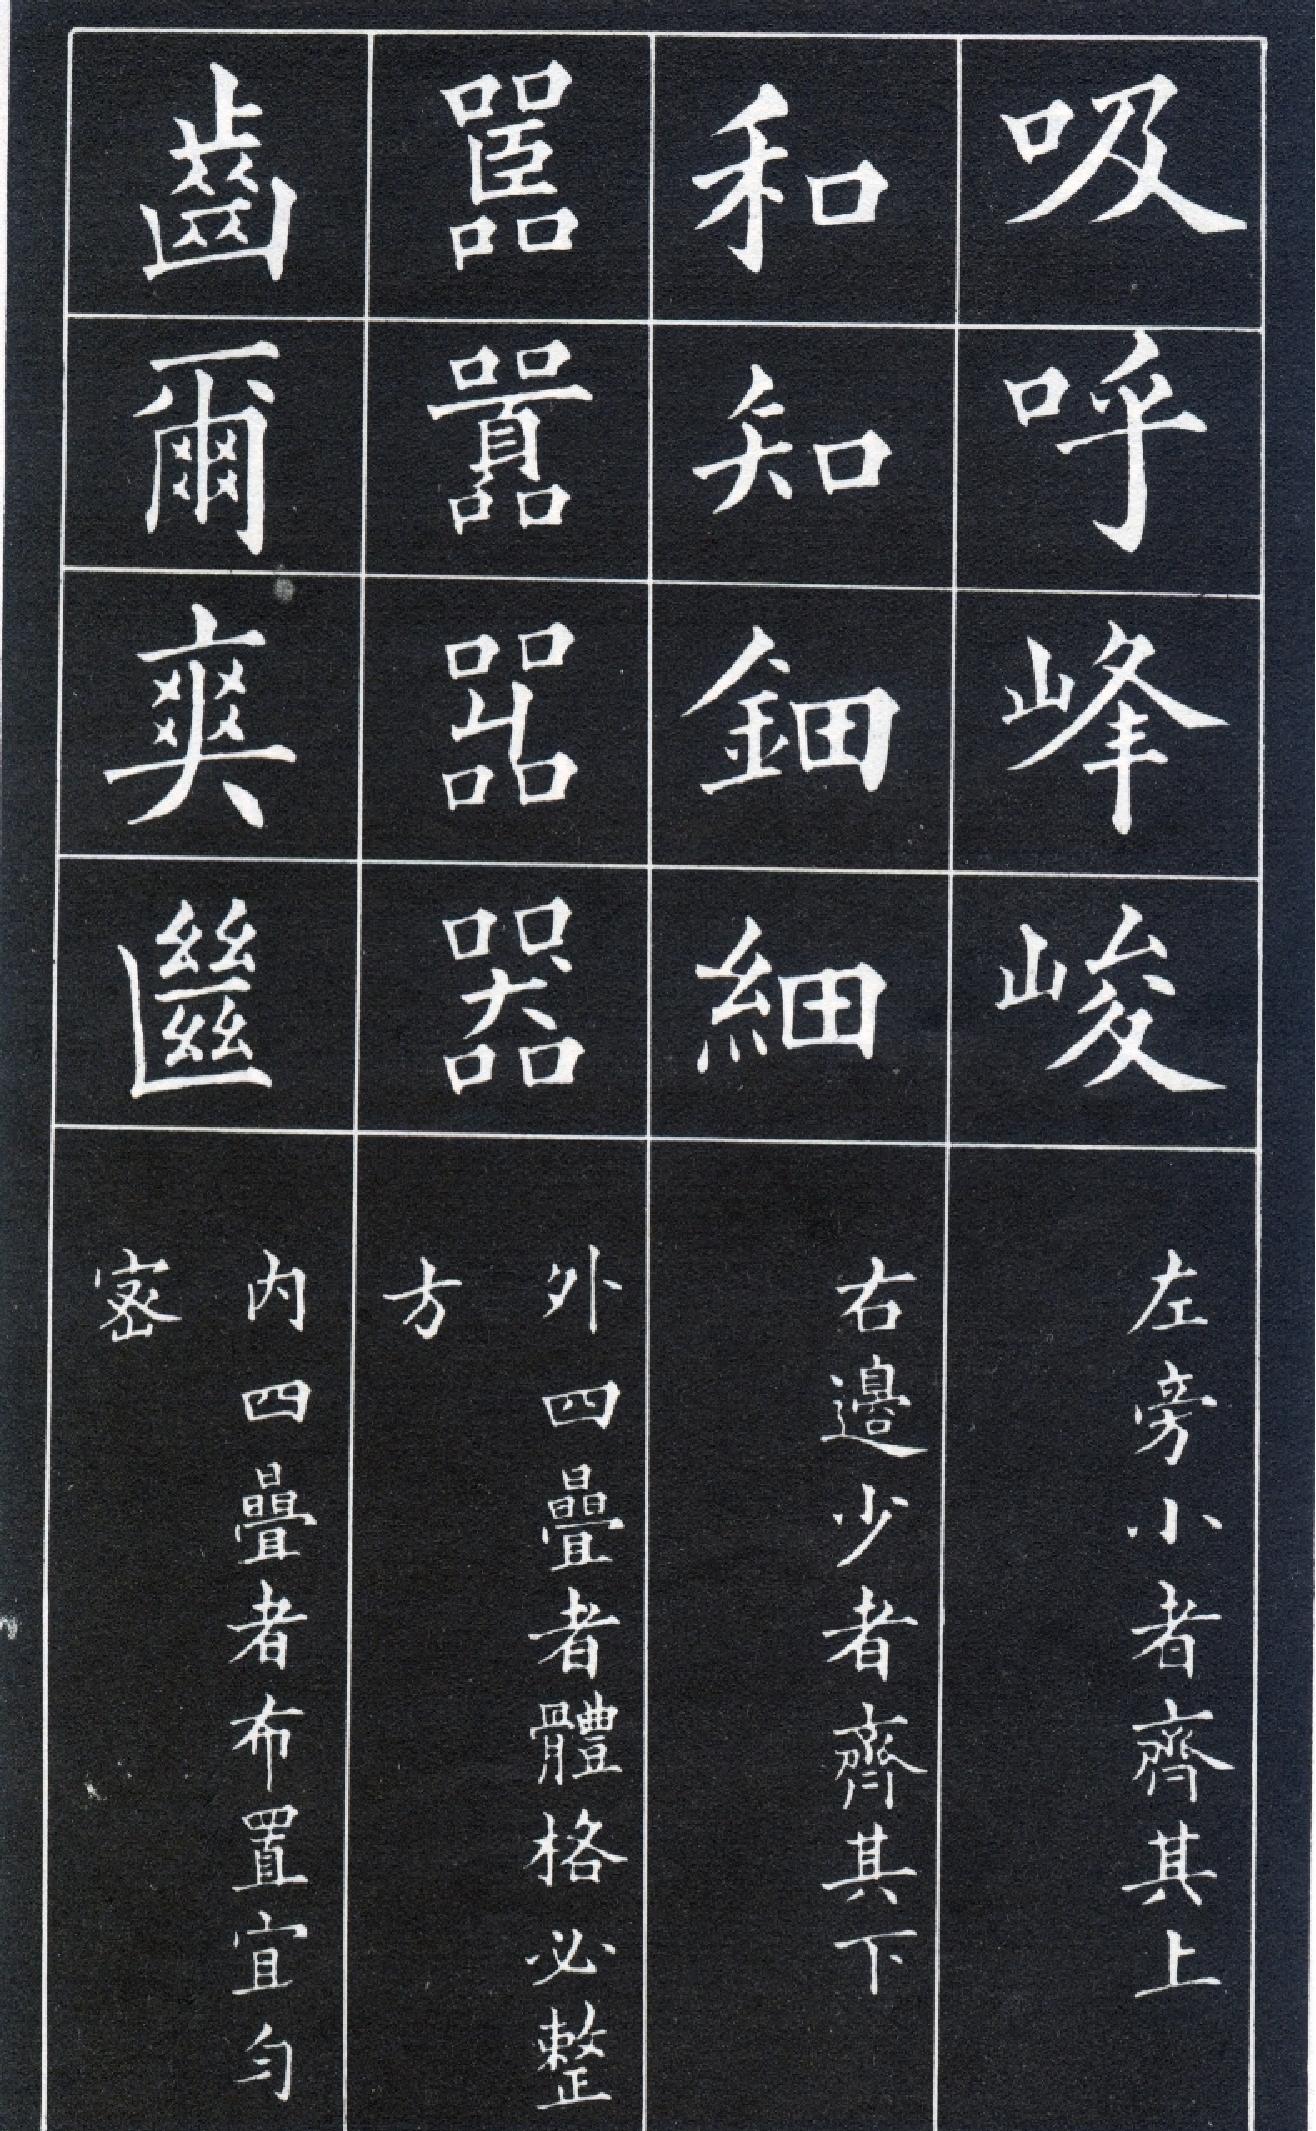 吸呼峰峻
左旁小者齊其上
和知鈿細
右邊少者齊其下
嚚囂嘂器
外四曡者體格必整
方
齒爾爽㡭
内四曡者布置宜匀
密